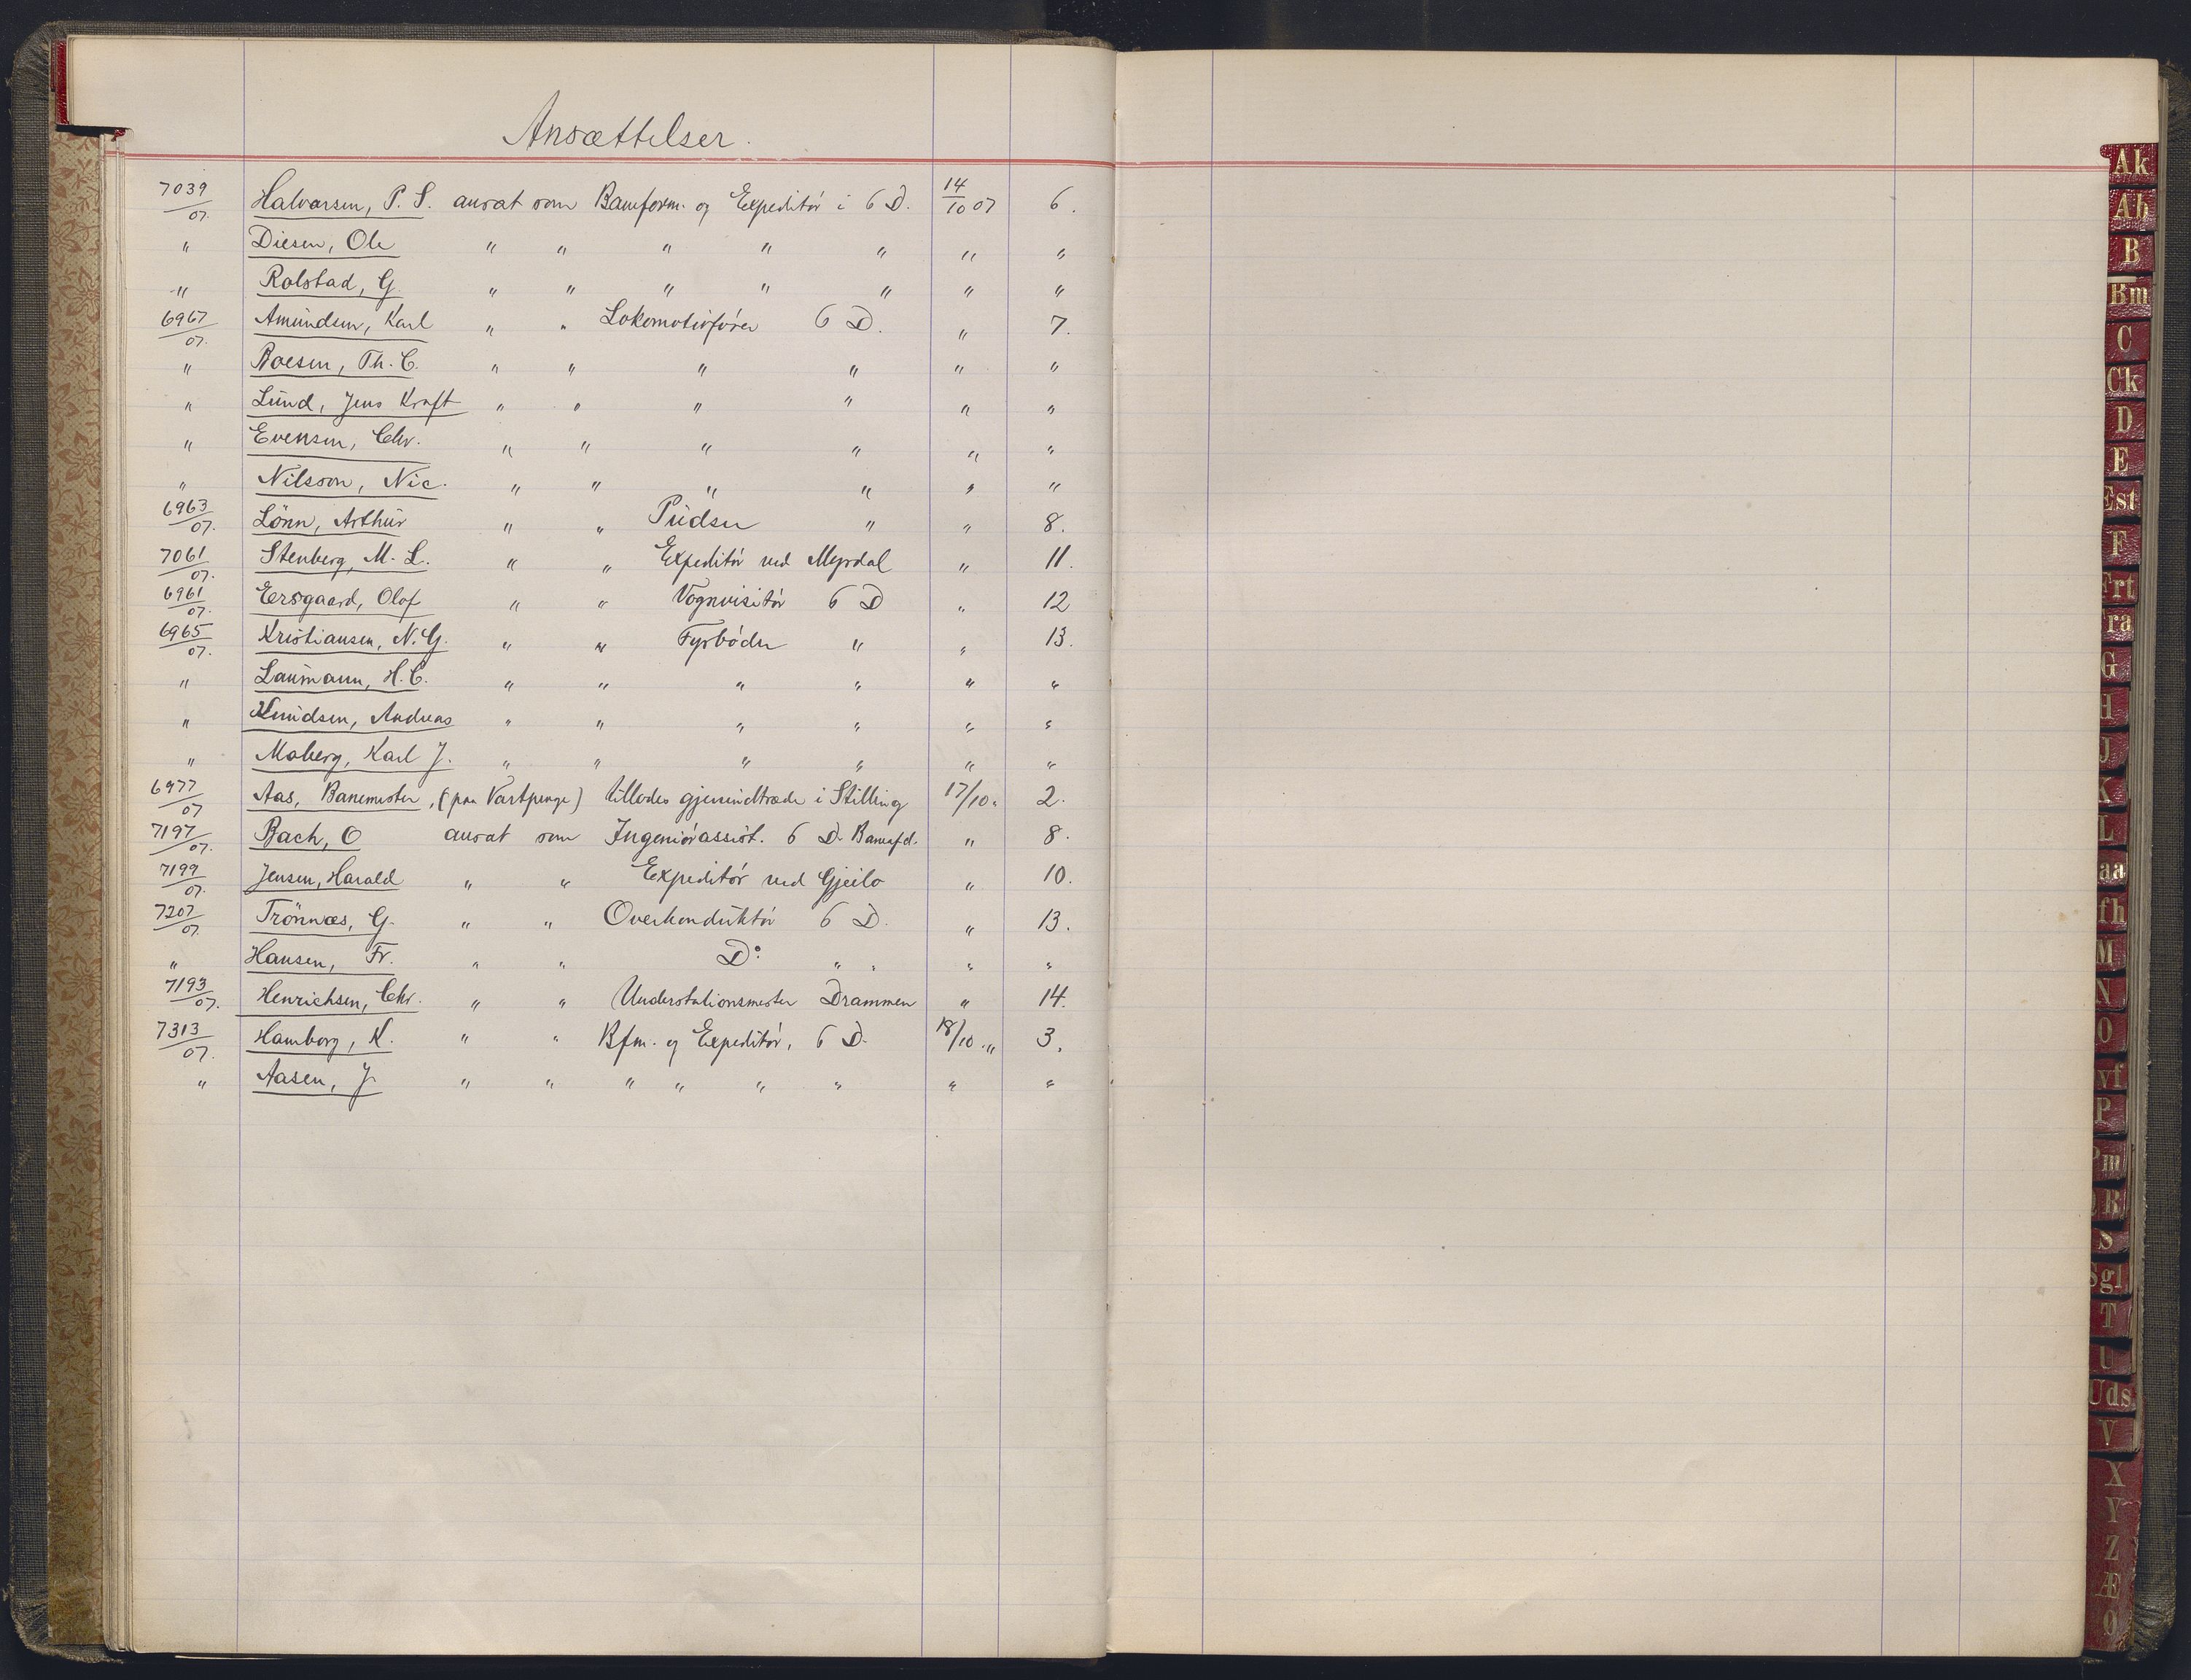 Ansættelser.
7039/07. Halvorsen, P. S. ansat som Baneform. og Expeditør i 6 D. 14/10 07 6.
" Diesen, Ole " " " " " " "
" Rolstad, G. " " " " " " "
6967/07. Amundsen, Karl " " Lokomotivfører 6 D. " 7.
" Boesen, Th. C. " " " " " "
" Lund, Jens Kraft " " " " " "
" Evensen, Chr. " " " " " "
" Nilsson, Nic. " " " " " "
6963/07. Lönn, Arthur " " Pudser " " 8.
7061/07. Stenberg, M. L. " " Expeditør ved Myrdal " 11.
6961/07. Eersgaard, Olof " " Vognvisitør 6 D " 12
6965/07. Kristiansen, N. G. " " Fyrbøder " " 13.
" Laumann, H. C. " " " " " "
" Knudsen, Andreas " " " " " "
" Moberg, Karl J. " " " " " "
6977/07 Aas, Banemester, (paa Vartpenge) tillades gjenindtræde i Stilling 17/10 " 2.
7197/07. Bach, O ansat som Ingeniørassist. 6 D. Baneafd. " 8.
7199/07. Jensen, Harald " " Expeditør ved Gjeilo " 10.
7207/07. Trönnæs, G. " " Overkonduktør 6 D. " 13.
" Hansen, Fr. " " Do " " " "
7193/07. Henrichsen, Chr. " " Understationsmester Drammen " 14.
7313/07. Hamborg, K. " " Bfm. og Expeditør, 6 D. 18/10 " 3.
" Aasen, J. " " " " " " " "
Ak
Ab
B
Bm
C
Ck
D
E
Est
F
Frt
ra
G
H
J
K
L
aa
fh
M
N
O
vf
P
Pm
R
S
Sgl
T
U
Uds
V
X
Y
Z
Æ
Ø